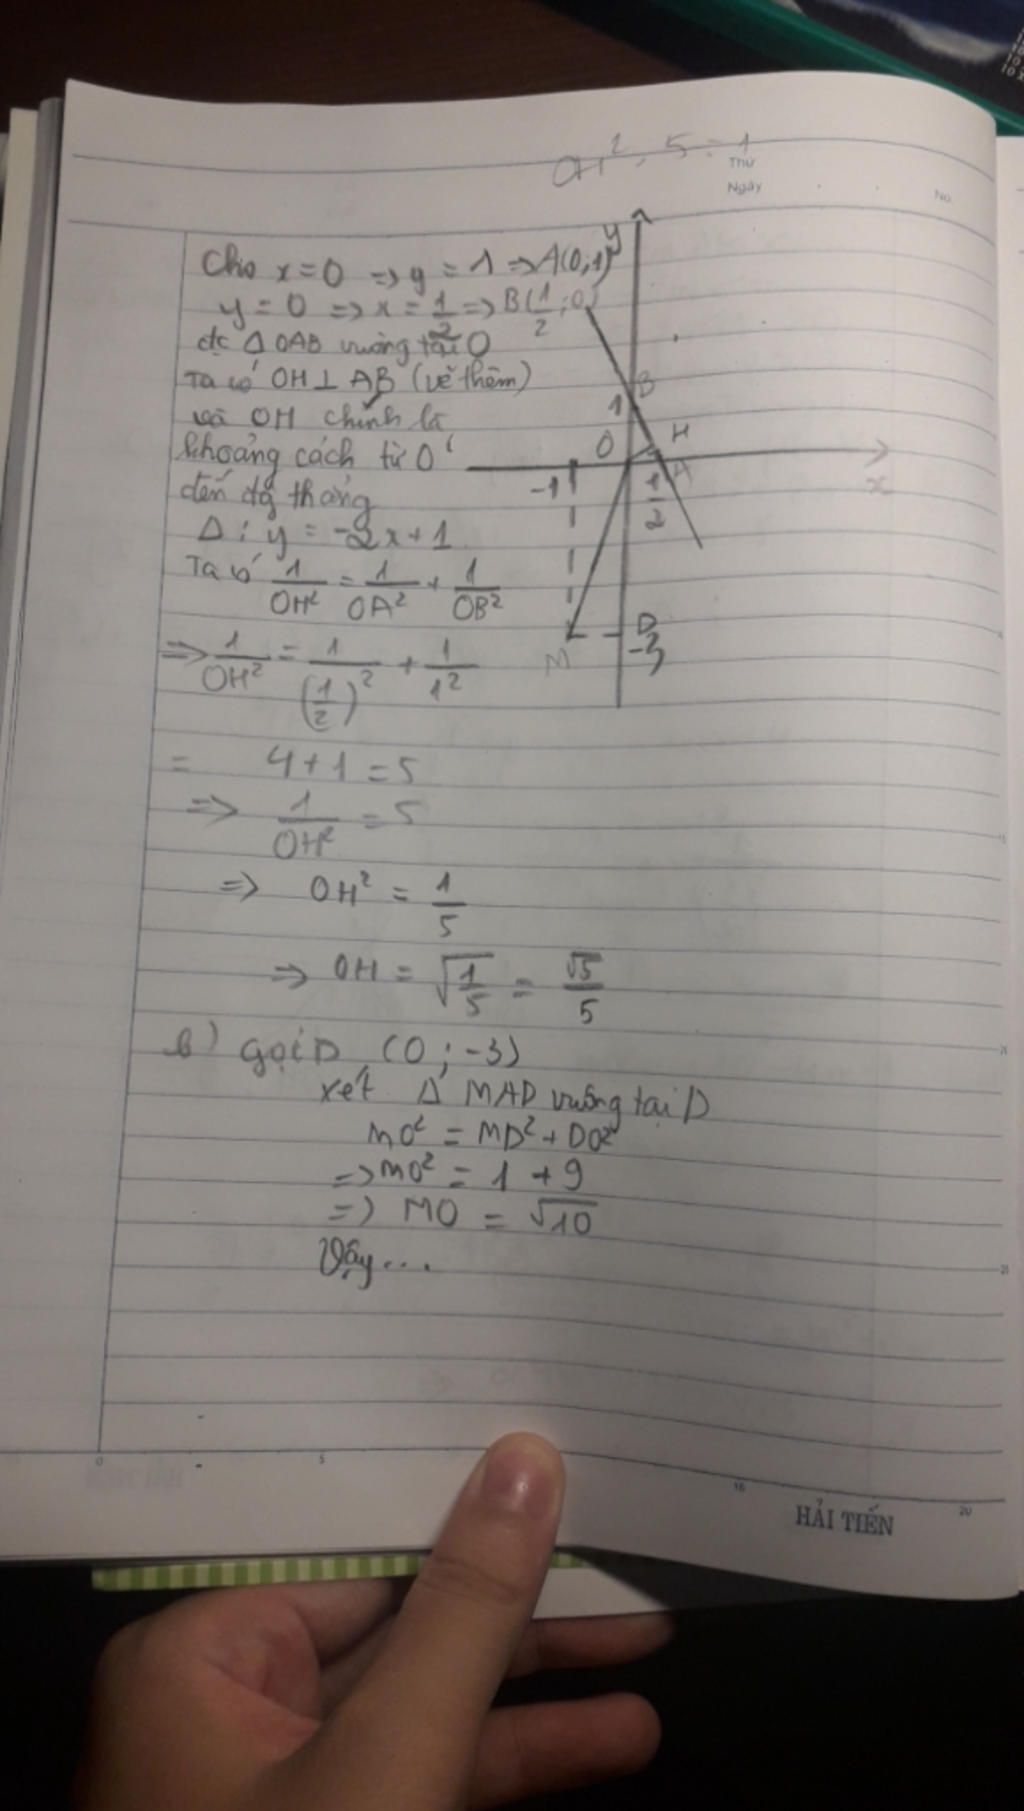 OH². 5 = 1
Thứ
Ngày
No.
Cho x = 0 => y = 1 => A(0;1)
y = 0 => x = 1/2 => B(1/2;0)
đc Δ OAB vuông tại O
Ta có OH ⊥ AB (vẽ thêm)
và OH chính là
khoảng cách từ O
đến đg thẳng
Δ: y = -2x+1
Ta có 1/OH² = 1/OA² + 1/OB²
=> 1/OH² = 1/(1/2)² + 1/1²
= 4+1 = 5
=> 1/OH² = 5
=> OH² = 1/5
=> OH = √(1/5) = √5/5
y
B
1
H
O
A
x
-1
1/2
D
-3
M
b) Gọi D (0; -3)
xét Δ MAD vuông tại D
MO² = MD² + DO²
=> MO² = 1 + 9
=> MO = √10
Vậy...
0
5
15
20
HẢI TIẾN